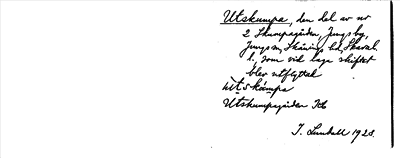 Utskumpa, den del av nr
2 Skumpagården, Jungs by,
Jungs sn, Skånings hd, Skarab.
l., som vid laga skiftet
blev utflyttad
Utskumpagården Ib
I. Lundall 1925.